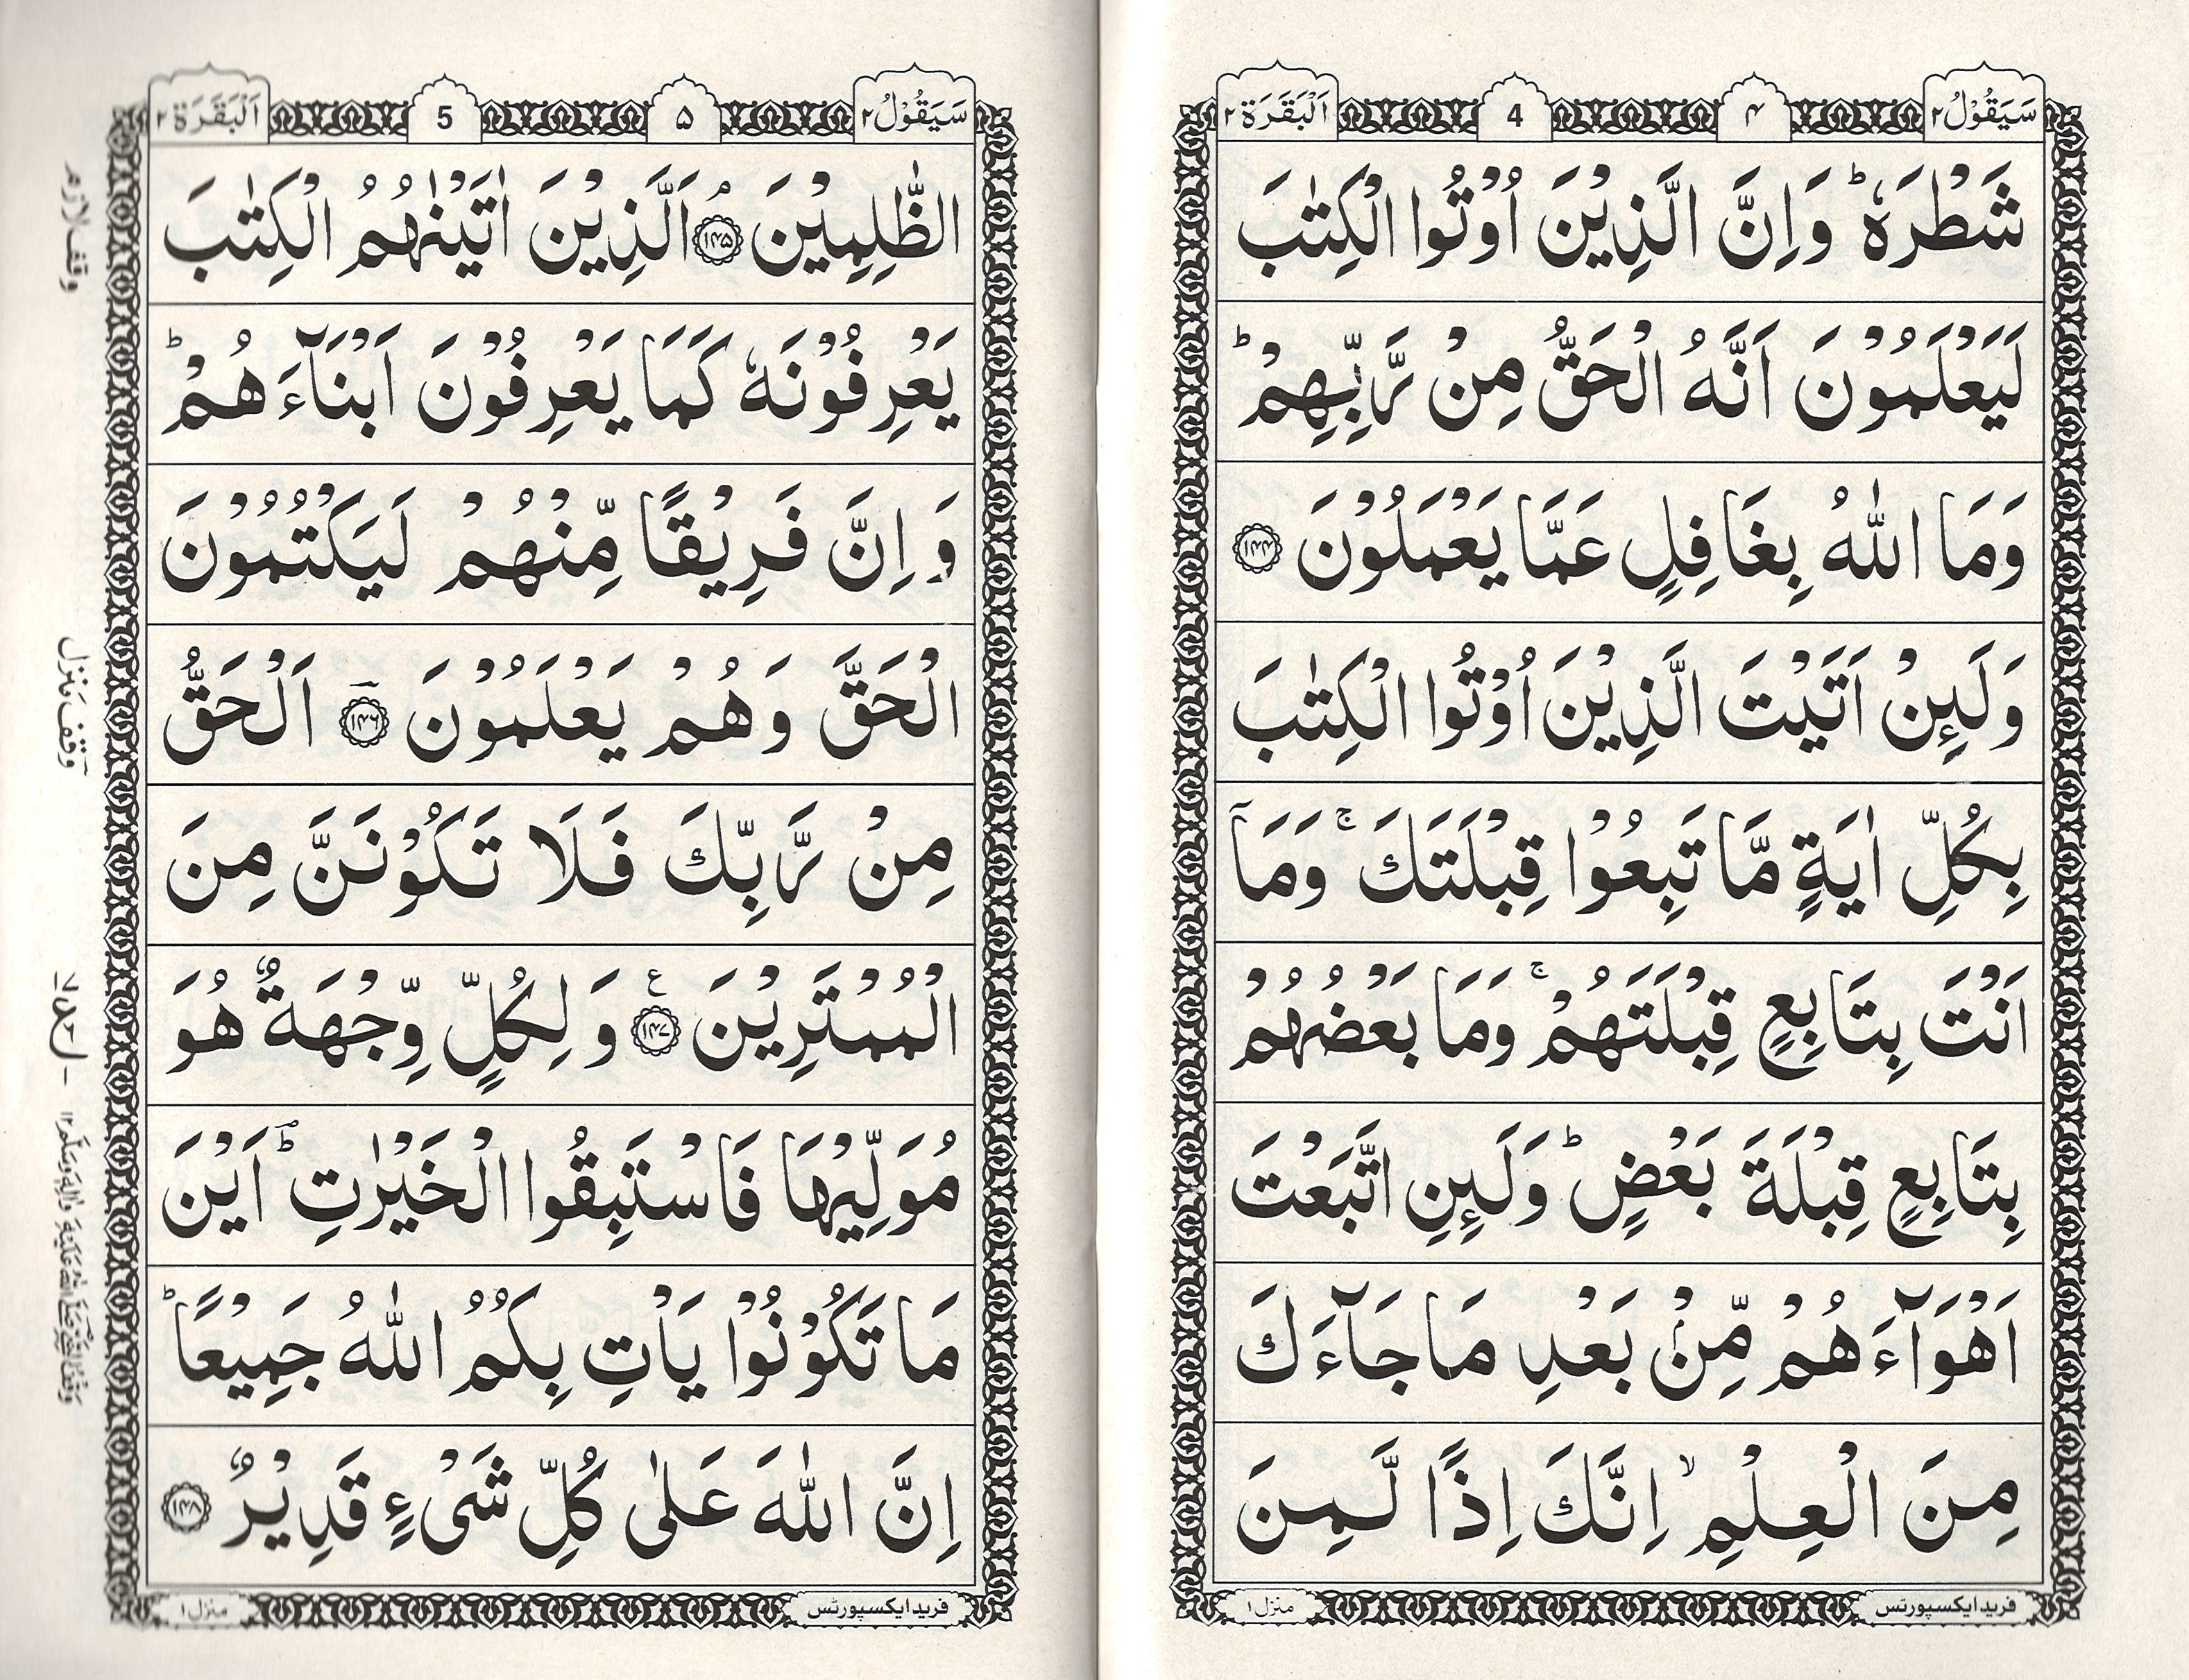 سَيَقُوْلُ ٢
۴
4
اَلْبَقَرَة ٢
شَطْرَهٗ ؕ وَاِنَّ الَّذِيْنَ اُوْتُوا الْكِتٰبَ
لَيَعْلَمُوْنَ اَنَّهُ الْحَقُّ مِنْ رَّبِّهِمْ ؕ
وَمَا اللّٰهُ بِغَافِلٍ عَمَّا يَعْمَلُوْنَ ﴿۱۴۴﴾
وَلَىِٕنْ اَتَيْتَ الَّذِيْنَ اُوْتُوا الْكِتٰبَ
بِكُلِّ اٰيَةٍ مَّا تَبِعُوْا قِبْلَتَكَ ۚ وَمَاۤ
اَنْتَ بِتَابِعٍ قِبْلَتَهُمْ ۚ وَمَا بَعْضُهُمْ
بِتَابِعٍ قِبْلَةَ بَعْضٍ ؕ وَلَىِٕنِ اتَّبَعْتَ
اَهْوَآءَهُمْ مِّنْۢ بَعْدِ مَا جَآءَكَ
مِنَ الْعِلْمِ ۙ اِنَّكَ اِذًا لَّمِنَ
فريد ايکسپورٹس
منزل ١
سَيَقُوْلُ ٢
۵
5
اَلْبَقَرَة ٢
الظّٰلِمِيْنَ ۘ﴿۱۴۵﴾ اَلَّذِيْنَ اٰتَيْنٰهُمُ الْكِتٰبَ
يَعْرِفُوْنَهٗ كَمَا يَعْرِفُوْنَ اَبْنَآءَهُمْ ؕ
وَ اِنَّ فَرِيْقًا مِّنْهُمْ لَيَكْتُمُوْنَ
الْحَقَّ وَهُمْ يَعْلَمُوْنَ ﴿۱۴۶﴾ اَلْحَقُّ
مِنْ رَّبِّكَ فَلَا تَكُوْنَنَّ مِنَ
الْمُمْتَرِيْنَ ﴿۱۴۷﴾ ع وَ لِكُلٍّ وِّجْهَةٌ هُوَ
مُوَلِّيْهَا فَاسْتَبِقُوا الْخَيْرٰتِ ؕ اَيْنَ
مَا تَكُوْنُوْا يَاْتِ بِكُمُ اللّٰهُ جَمِيْعًا ؕ
اِنَّ اللّٰهَ عَلٰى كُلِّ شَىْءٍ قَدِيْرٌ ﴿۱۴۸﴾
وقف لازم
وَقْف مَنْزِل
فريد ايکسپورٹس
منزل ١